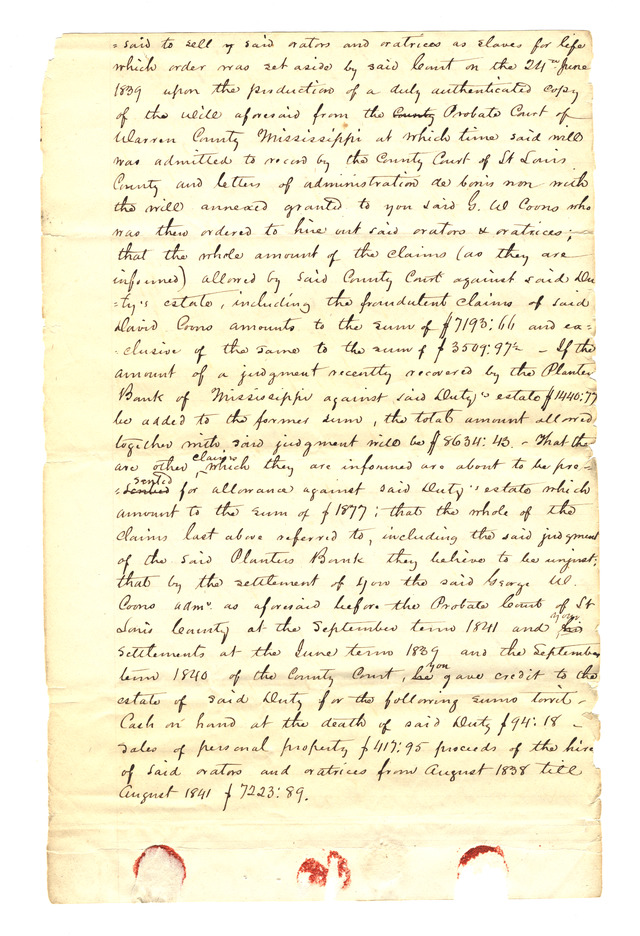 =said to sell y said orators and oratrices as slaves for life
which order was set aside by said Court on the 24th June
1839 upon the production of a duly authenticated copy
of the Will aforesaid from the County Probate Court of
Warren County Mississippi at which time said will
was admitted to record by the County Court of St Louis
County and letters of administration de bonis non with
the will annexed granted to you said G. W Coons who
was then ordered to hire out said orators & oratrices;
that the whole amount of the claims (as they are
informed) allowed by said County Court against said Du
=ty's estate, including the fraudulent claims of said
David Coons amounts to the sum of $7193:66 and ex=
=clusive of the same to the sum of $3509:97½ - If the
amount of a judgment recently recovered by the Planters
Bank of Mississippi against said Duty's estate $1440:77
be added to the former sum, the total amount allowed
together with said judgment will be $8634:43. - That the
are other claims which they are informed are about to be pre-
=sented for allowance against said Duty's estate which
amount to the sum of $1877; that the whole of the
claims last above referred to, including the said judgment
of the said Planters Bank they believe to be unjust;
that by the settlement of you the said George W.
Coons admr. as aforesaid before the Probate Court of St
Louis County at the September term 1841 and your
settlements at the June term 1839 and the September
term 1840 of the County Court, he you gave credit to the
estate of said Duty for the following sums towit -
Cash on hand at the death of said Duty $94:18 -
Sales of personal property $417:95 proceeds of the hire
of said orators and oratrices from August 1838 till
August 1841 $7223:89.